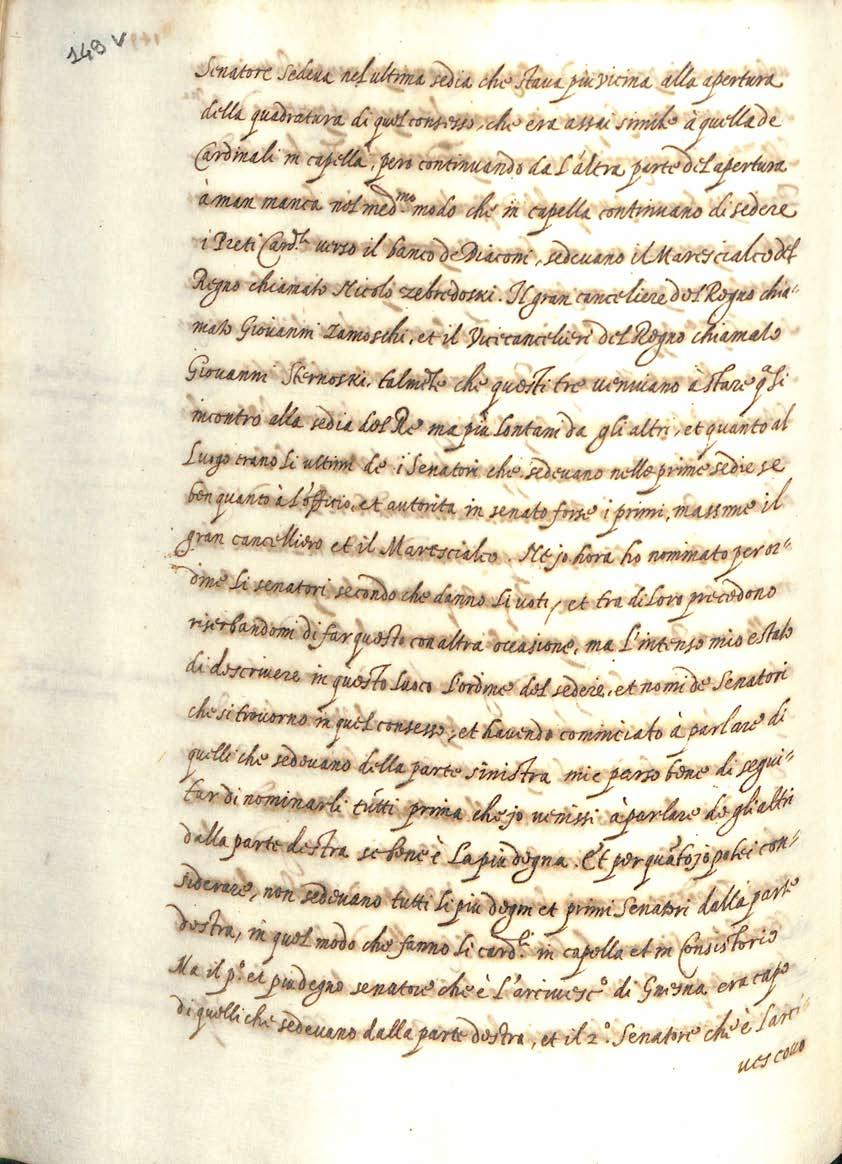 149 v
Senatore sedeva nel ultima sedia che stava piu vicina alla apertura
della quadratura di quel consesso, che era assai simile à quella de
Cardinali in capella, però continuando da l'altra parte del apertura
à man manca nel med.mo modo che in capella continuano di sedere
i Preti Card.li verso il banco de Diaconi, sedevano il Marescialco del
Regno chiamato Nicolo Zebredoski. Il gran canceliere del Regno chia=
mato Giovanni Zamoschi, et il Vicecancelieri del Regno chiamato
Giovanni talmte che questi tre venivano à stare qsi
incontro alla sedia del Re ma più lontani da gli altri, et quanto al
Luogo erano li ultimi de i Senatori che sedevano nelle prime sedie se
ben quanto à l'officio, et autorita in senato forse i primi, massime il
gran cancelliero et il Maresciallo. Ne jo hora ho nominato per or=
dine li senatori secondo che danno li voti, et tra di loro precedono
riserbandomi di far questo con altra occasione, ma l'intenso mio e stato
di descrivere in questo luoco l'ordine del sedere, et nomi de Senatori
che si trovorno in quel consesso, et havendo cominciato à parlare di
quelli che sedevano della parte sinistra mie parso bene di segui=
tar di nominarli tutti prima che jo venissi à parlare de gli altri
dalla parte destra se bene è la piu degna. Et per quāto jo potei con=
siderare, non sedevano tutti li piu degni et primi Senatori dalla parte
destra, in quel modo che fanno li card.li in capella et in Consistorio
Ma il p.º et piu degno senatore che è l'arcivesc.º di Gnesna era capo
di quelli che sedevano dalla parte destra, et il 2.º Senatore che è l'arci=
vescovo